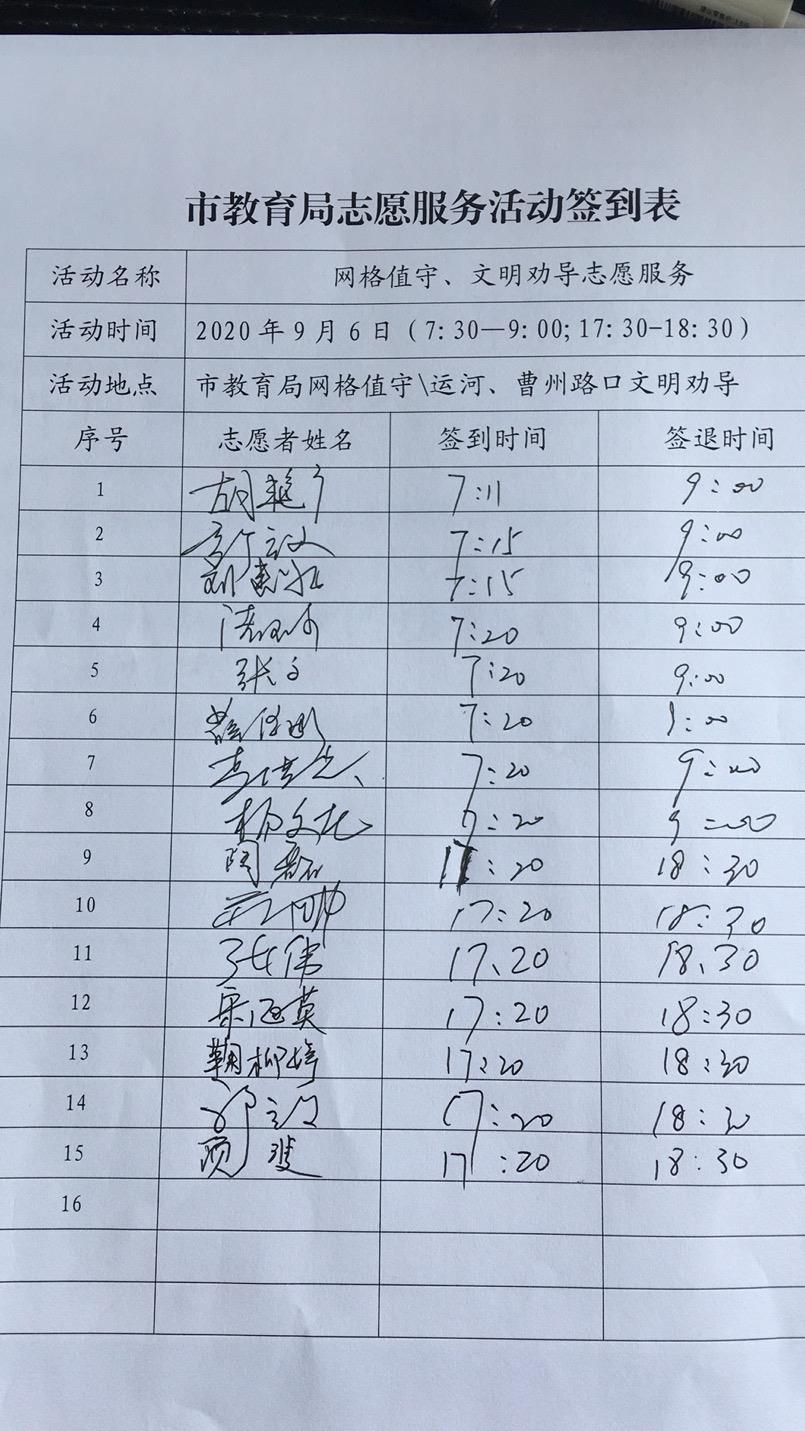 市教育局志愿服务活动签到表
活动名称 网格值守、文明劝导志愿服务
活动时间 2020年9月6日（7:30—9:00;17:30-18:30）
活动地点 市教育局网格值守\运河、曹州路口文明劝导
序号 志愿者姓名 签到时间 签退时间
1 7:11 9:00
2 7:15 9:00
3 7:15 9:00
4 7:20 9:00
5 7:20 9:00
6 7:20 9:00
7 7:20 9:00
8 杨文龙 7:20 9:00
9 陶磊 17:20 18:30
10 17:20 18:30
11 张伟 17、20 18、30
12 17:20 18:30
13 鞠柳婷 17:20 18:30
14 17:20 18:30
15 17:20 18:30
16